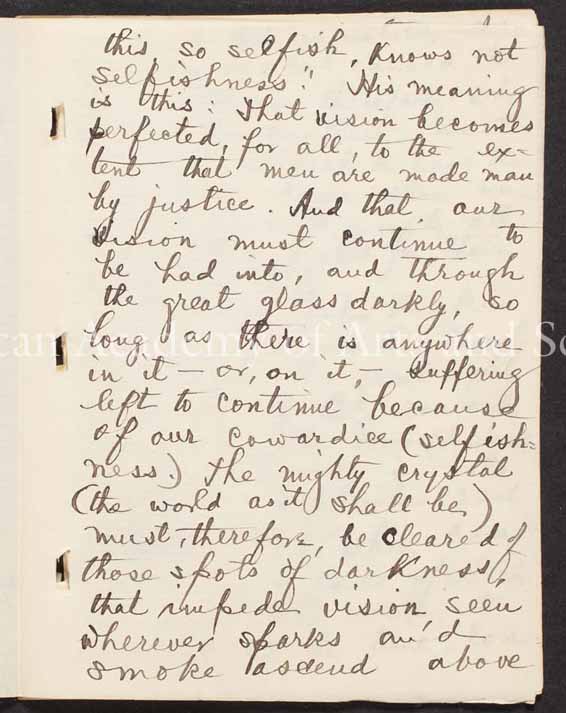 this so selfish, knows not
selfishness." His meaning
is this: That vision becomes
perfected, for all, to the ex=
tent that men are made man
by justice. And that our
vision must continue to
be had into, and through
the great glass darkly, so
long as there is anywhere
in it — or, on it, — suffering
left to continue because
of our cowardice (selfish=
ness.) The mighty crystal
(the world as it shall be)
must, therefore, be cleared of
those spots of darkness,
that impede vision seen
wherever sparks and
smoke ascend above
can Academy of Arts and Sc